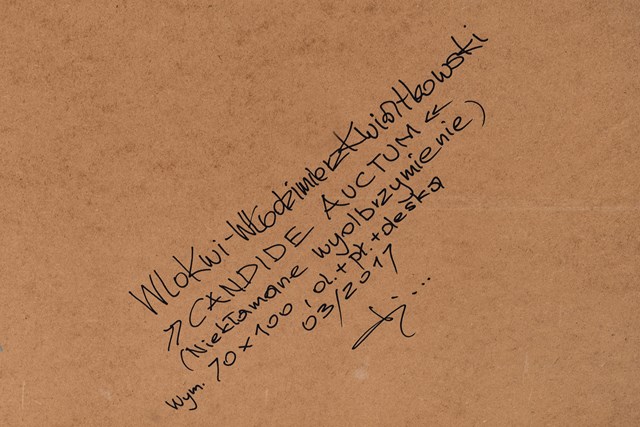 WloKwi-Włodzimierz Kwiatkowski
»CANDIDE AUCTUM«
(Niekłamane wyolbrzymienie)
wym. 70x100, ol.+pł.+deska
03/2017